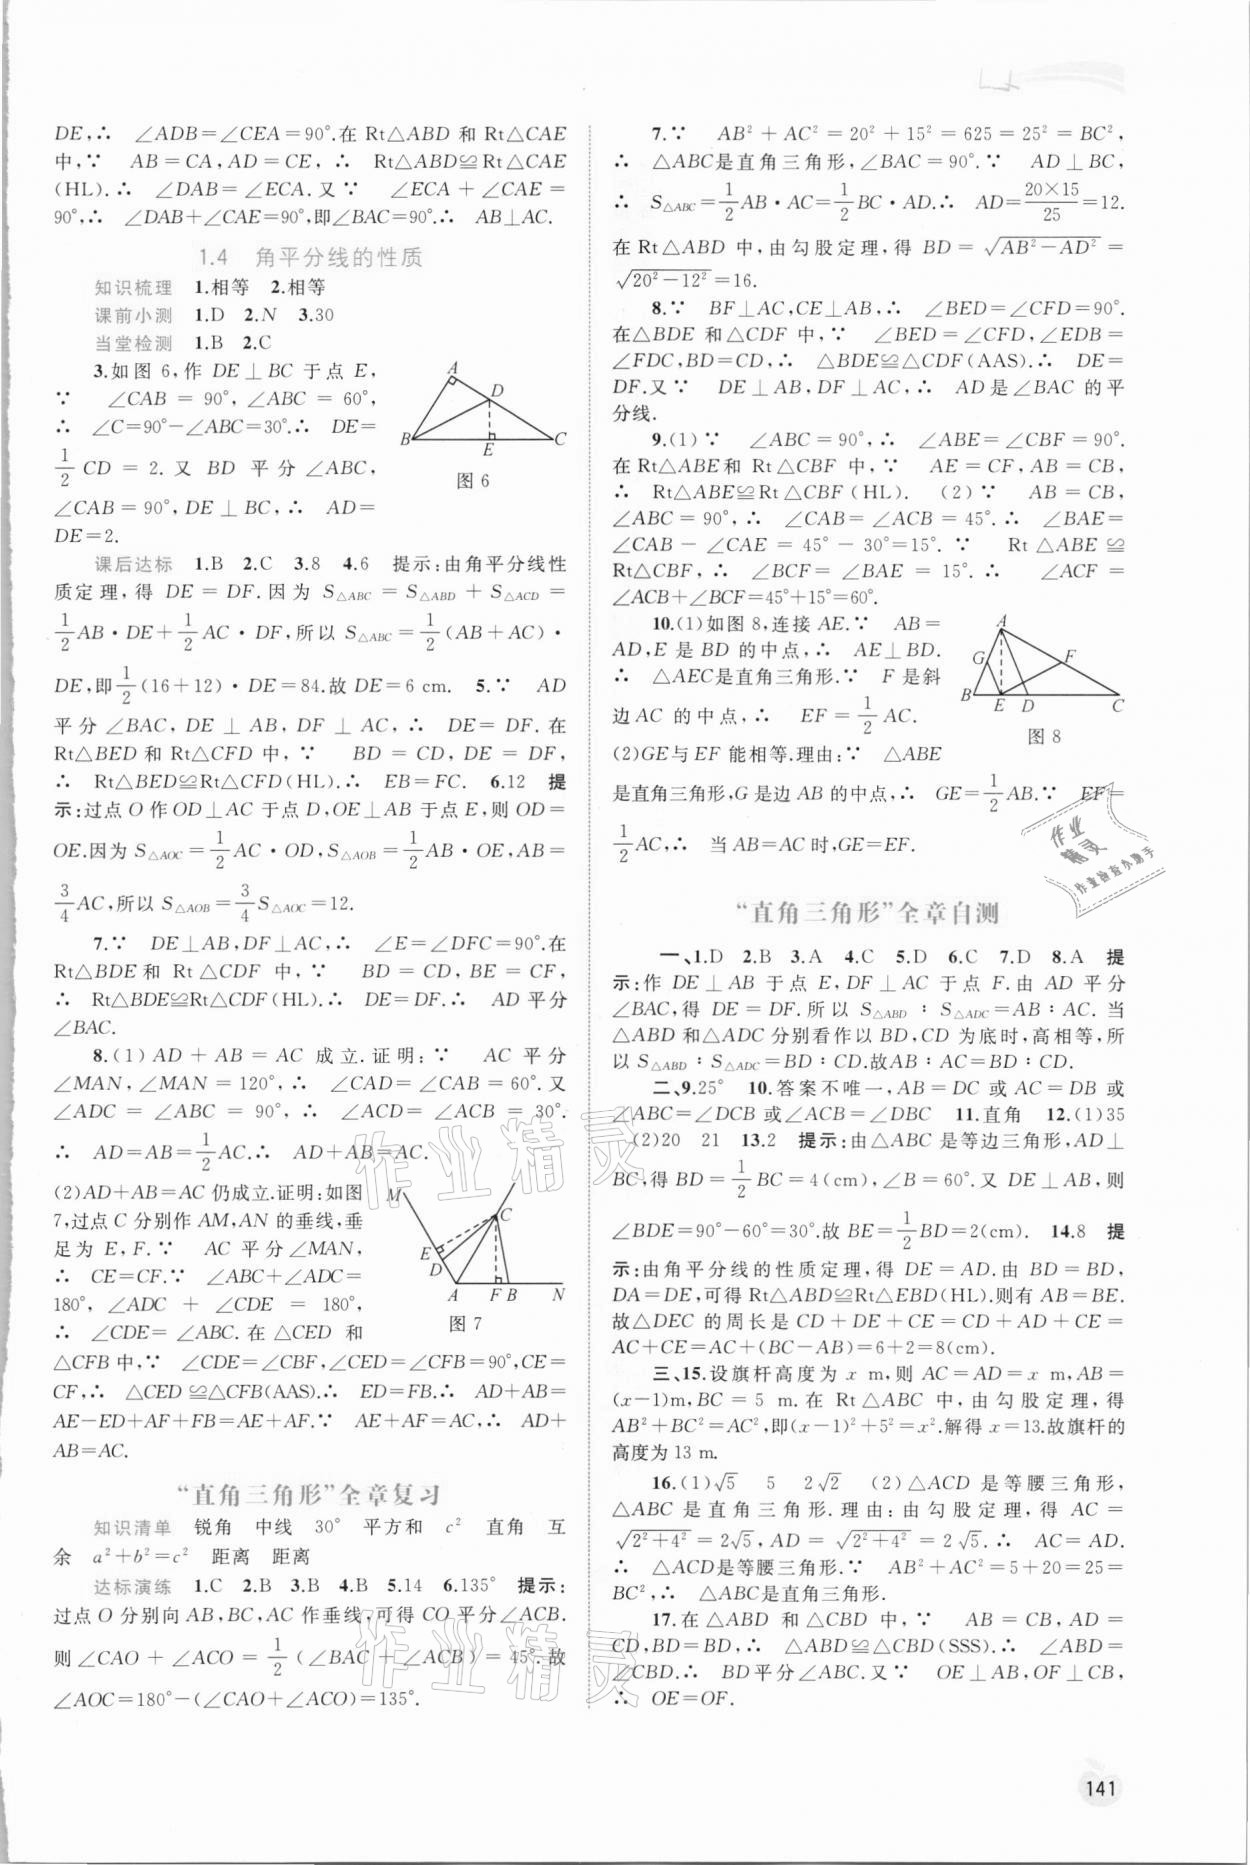 DE,∴ ∠ADB=∠CEA=90°.在 Rt△ABD 和 Rt△CAE
中,∵ AB=CA,AD=CE, ∴ Rt△ABD≌Rt△CAE
(HL).∴ ∠DAB=∠ECA.又∵ ∠ECA+∠CAE=
90°,∴ ∠DAB+∠CAE=90°,即∠BAC=90°.∴ AB⊥AC.
1.4 角平分线的性质
知识梳理 1.相等 2.相等
课前小测 1.D 2.N 3.30
当堂检测 1.B 2.C
3.如图 6,作 DE⊥BC 于点 E,
∵ ∠CAB = 90°,∠ABC = 60°,
∴ ∠C=90°-∠ABC=30°.∴ DE=
1/2 CD = 2. 又 BD 平分∠ABC,
∠CAB = 90°,DE⊥BC,∴ AD=
DE=2.
A
D
B
E
C
图 6
课后达标 1.B 2.C 3.8 4.6 提示:由角平分线性
质定理,得 DE=DF.因为 S△ABC = S△ABD + S△ACD =
1/2 AB·DE+1/2 AC·DF,所以 S△ABC=1/2(AB+AC)·
DE,即1/2(16+12)·DE=84.故 DE=6 cm. 5.∵ AD
平分∠BAC,DE⊥AB,DF⊥AC,∴ DE=DF.在
Rt△BED 和 Rt△CFD 中,∵ BD=CD,DE=DF,
∴ Rt△BED≌Rt△CFD(HL).∴ EB=FC. 6.12 提
示:过点 O 作 OD⊥AC 于点 D,OE⊥AB 于点 E,则 OD=
OE.因为 S△AOC=1/2 AC·OD,S△AOB=1/2 AB·OE,AB=
3/4 AC,所以 S△AOB=3/4 S△AOC=12.
7.∵ DE⊥AB,DF⊥AC,∴ ∠E=∠DFC=90°.在
Rt△BDE 和 Rt△CDF 中,∵ BD=CD,BE=CF,
∴ Rt△BDE≌Rt△CDF(HL).∴ DE=DF.∴ AD 平分
∠BAC.
8.(1) AD+AB=AC 成立.证明:∵ AC 平分
∠MAN,∠MAN=120°,∴ ∠CAD=∠CAB=60°.又
∠ADC = ∠ABC = 90°,∴ ∠ACD=∠ACB=30°.
∴ AD=AB=1/2 AC.∴ AD+AB=AC.
(2)AD+AB=AC 仍成立.证明:如图
7,过点 C 分别作 AM,AN 的垂线,垂
足为 E,F.∵ AC 平分∠MAN,
∴ CE=CF.∵ ∠ABC+∠ADC=
180°,∠ADC + ∠CDE = 180°,
∴ ∠CDE=∠ABC.在△CED 和
△CFB 中,∵ ∠CDE=∠CBF,∠CED=∠CFB=90°,CE=
CF,∴ △CED≌△CFB(AAS).∴ ED=FB.∴ AD+AB=
AE-ED+AF+FB=AE+AF.∵ AE+AF=AC,∴ AD+
AB=AC.
M
C
E
D
A
F B
N
图 7
“直角三角形”全章复习
知识清单 锐角 中线 30° 平方和 c² 直角 互
余 a²+b²=c² 距离 距离
达标演练 1.C 2.B 3.B 4.B 5.14 6.135° 提示:
过点 O 分别向 AB,BC,AC 作垂线,可得 CO 平分∠ACB.
则∠CAO+∠ACO=1/2(∠BAC+∠ACB)=45°.故
∠AOC=180°-(∠CAO+∠ACO)=135°.
7.∵ AB²+AC²=20²+15²=625=25²=BC²,
∴ △ABC是直角三角形,∠BAC=90°.∵ AD⊥BC,
∴ S△ABC=1/2 AB·AC=1/2 BC·AD.∴ AD=20×15/25=12.
在 Rt△ABD 中,由勾股定理,得 BD=√(AB²-AD²)=
√(20²-12²)=16.
8.∵ BF⊥AC,CE⊥AB,∴ ∠BED=∠CFD=90°.
在△BDE 和△CDF 中,∵ ∠BED=∠CFD,∠EDB=
∠FDC,BD=CD,∴ △BDE≌△CDF(AAS).∴ DE=
DF.又∵ DE⊥AB,DF⊥AC,∴ AD 是∠BAC 的平
分线.
9.(1)∵ ∠ABC=90°,∴ ∠ABE=∠CBF=90°.
在 Rt△ABE和 Rt△CBF 中,∵ AE=CF,AB=CB,
∴ Rt△ABE≌Rt△CBF(HL). (2)∵ AB=CB,
∠ABC=90°,∴ ∠CAB=∠ACB=45°.∴ ∠BAE=
∠CAB-∠CAE=45°-30°=15°.∵ Rt△ABE≌
Rt△CBF,∴ ∠BCF=∠BAE=15°.∴ ∠ACF=
∠ACB+∠BCF=45°+15°=60°.
10.(1)如图 8,连接 AE.∵ AB=
AD,E 是 BD 的中点,∴ AE⊥BD.
∴ △AEC是直角三角形.∵ F 是斜
边 AC 的中点,∴ EF=1/2 AC.
(2)GE与 EF 能相等.理由:∵ △ABE
是直角三角形,G 是边 AB 的中点,∴ GE=1/2 AB.∵ EF=
1/2 AC,∴ 当 AB=AC 时,GE=EF.
A
G
F
B
E D
C
图 8
“直角三角形”全章自测
一、1.D 2.B 3.A 4.C 5.D 6.C 7.D 8.A 提
示:作 DE⊥AB 于点 E,DF⊥AC 于点 F.由 AD 平分
∠BAC,得 DE=DF.所以 S△ABD∶S△ADC=AB∶AC.当
△ABD 和△ADC 分别看作以 BD,CD 为底时,高相等,所
以 S△ABD∶S△ADC=BD∶CD.故AB∶AC=BD∶CD.
二、9.25° 10.答案不唯一,AB=DC 或 AC=DB 或
∠ABC=∠DCB 或∠ACB=∠DBC 11.直角 12.(1)35
(2)20 21 13.2 提示:由△ABC 是等边三角形,AD⊥
BC,得 BD=1/2 BC=4(cm),∠B=60°.又 DE⊥AB,则
∠BDE=90°-60°=30°.故 BE=1/2 BD=2(cm). 14.8 提
示:由角平分线的性质定理,得 DE=AD.由 BD=BD,
DA=DE,可得 Rt△ABD≌Rt△EBD(HL).则有 AB=BE.
故△DEC 的周长是 CD+DE+CE=CD+AD+CE=
AC+CE=AC+(BC-AB)=6+2=8(cm).
三、15.设旗杆高度为 x m,则 AC=AD=x m,AB=
(x-1)m,BC=5 m.在 Rt△ABC 中,由勾股定理,得
AB²+BC²=AC²,即(x-1)²+5²=x².解得 x=13.故旗杆的
高度为 13 m.
16.(1)√5 5 2√2 (2)△ACD 是等腰三角形,
△ABC 是直角三角形.理由:由勾股定理,得 AC=
√(2²+4²)=2√5,AD=√(2²+4²)=2√5.∴ AC=AD.
∴ △ACD是等腰三角形.∵ AB²+AC²=5+20=25=
BC²,∴ △ABC是直角三角形.
17.在△ABD 和△CBD 中,∵ AB=CB,AD=
CD,BD=BD,∴ △ABD≌△CBD(SSS).∴ ∠ABD=
∠CBD.∴ BD平分∠ABC.又∵ OE⊥AB,OF⊥CB,
∴ OE=OF.
作业精灵
作业检查小助手
作业精灵
作业精灵
141